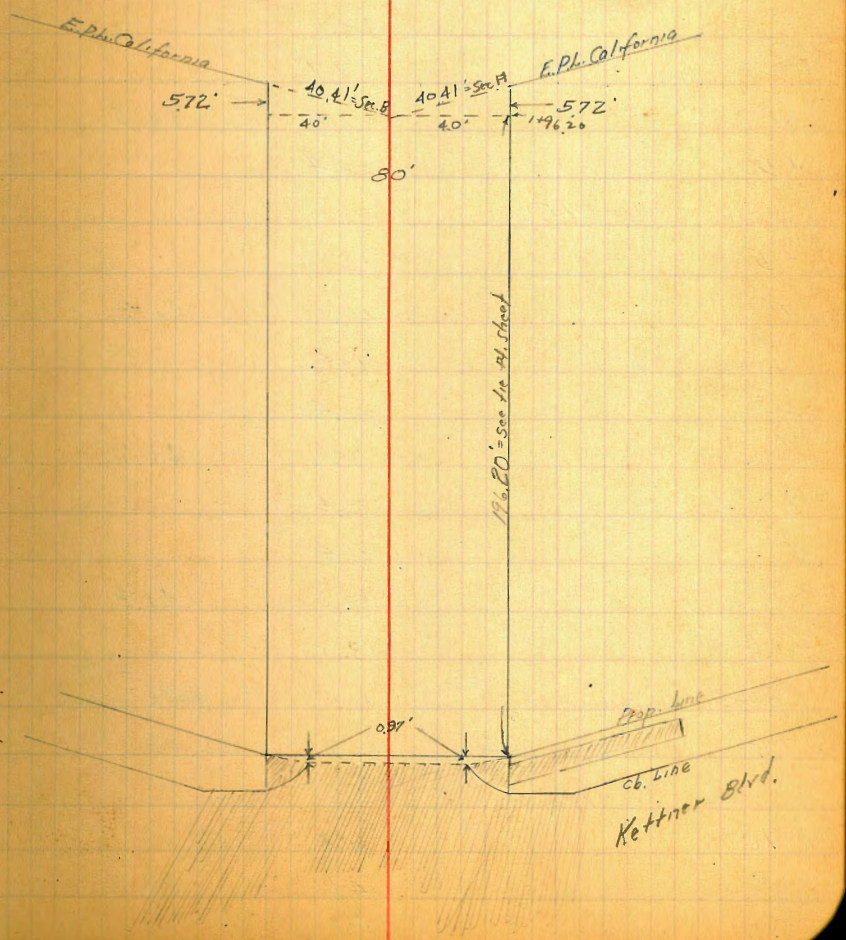 E.P.L. California
E.P.L. California
40.41' = Sec. B
40.41' = Sec. A
5.72'
5.72'
40'
40'
1+96.20
80'
196.20' = see tie pt. sheet
0.97'
Prop. Line
Cb. Line
Kettner Blvd.